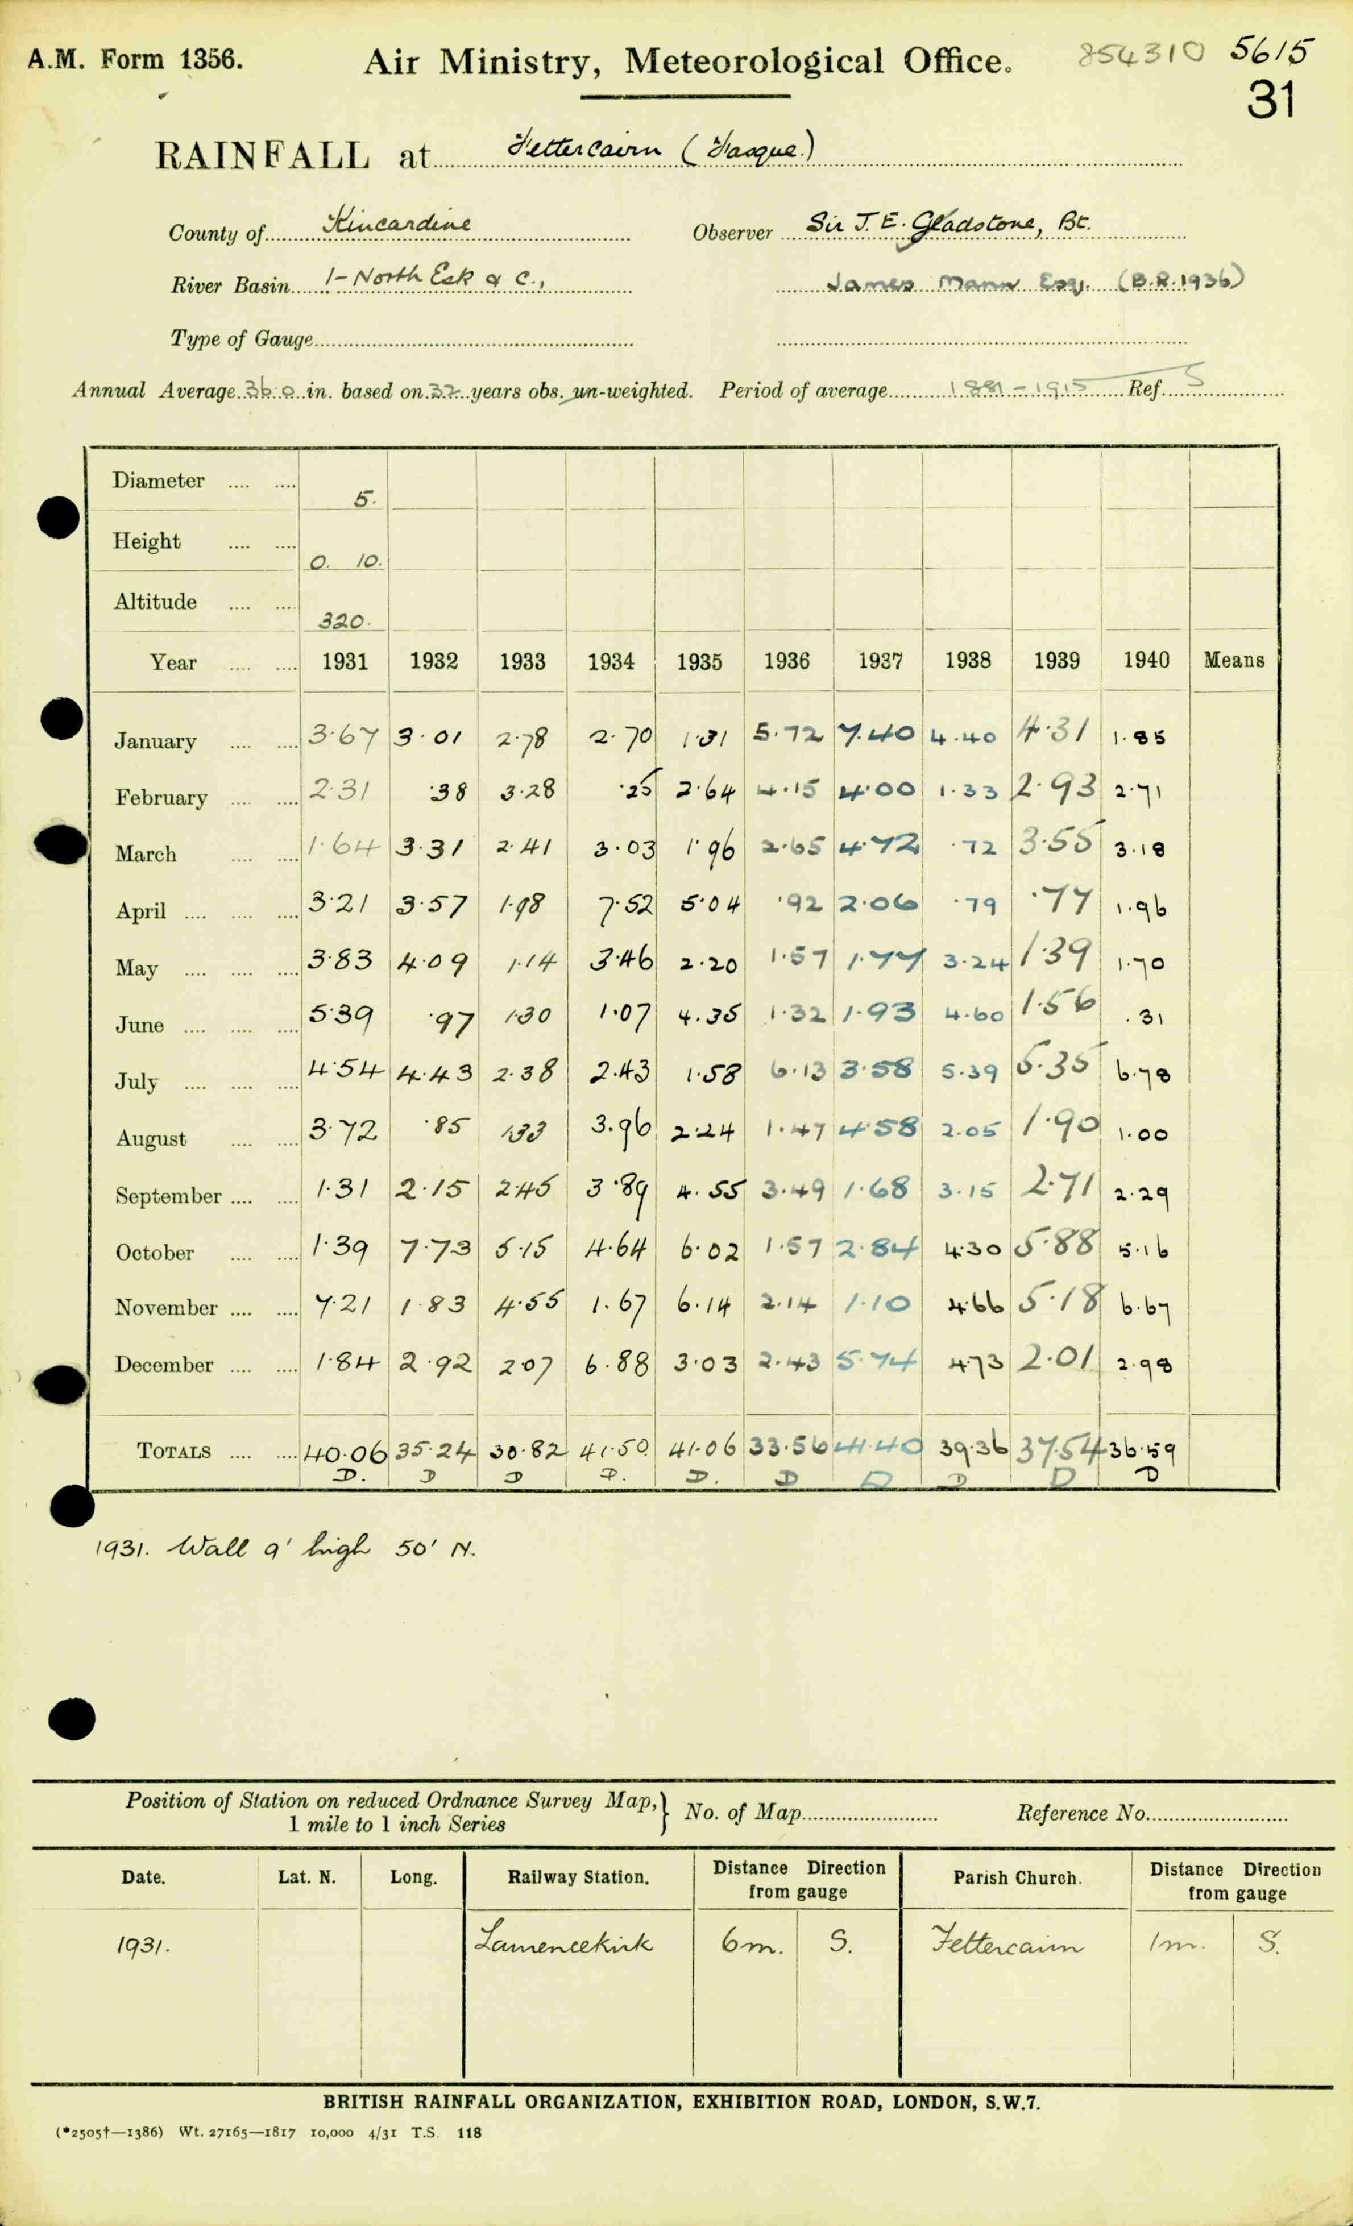 A.M. Form 1356. Air Ministry, Meteorological Office. 854310 5615
31
RAINFALL at Fettercairn (Fasque)
County of Kincardine Observer Sir J. E. Gladstone, Bt.
River Basin 1-North Esk & C., James Mann Esq. (B.R.1936)
Type of Gauge
Annual Average 36.0 in. based on 32 years obs. un-weighted. Period of average 1881-1915 Ref. 5
Diameter 5.
Height 0. 10.
Altitude 320.
Year 1931 1932 1933 1934 1935 1936 1937 1938 1939 1940 Means
January 3.67 3.01 2.78 2.70 1.31 5.72 7.40 4.40 4.31 1.85
February 2.31 .38 3.28 .25 2.64 4.15 4.00 1.33 2.93 2.71
March 1.64 3.31 2.41 3.03 1.96 2.65 4.72 .72 3.55 3.18
April 3.21 3.57 1.98 7.52 5.04 .92 2.06 .79 .77 1.96
May 3.83 4.09 1.14 3.46 2.20 1.57 1.77 3.24 1.39 1.70
June 5.39 .97 1.30 1.07 4.35 1.32 1.93 4.60 1.56 .31
July 4.54 4.43 2.38 2.43 1.58 6.13 3.58 5.39 5.35 6.78
August 3.72 .85 1.33 3.96 2.24 1.47 4.58 2.05 1.90 1.00
September 1.31 2.15 2.45 3.89 4.55 3.49 1.68 3.15 2.71 2.29
October 1.39 7.73 5.15 4.64 6.02 1.57 2.84 4.30 5.88 5.16
November 7.21 1.83 4.55 1.67 6.14 2.14 1.10 4.66 5.18 6.67
December 1.84 2.92 2.07 6.88 3.03 2.43 5.74 4.73 2.01 2.98
TOTALS 40.06 35.24 30.82 41.50 41.06 33.56 41.40 39.36 37.54 36.59
D. D D D. D. D D D D D
1931. Wall 9' high 50' N.
Position of Station on reduced Ordnance Survey Map, 1 mile to 1 inch Series } No. of Map Reference No.
Date. Lat. N. Long. Railway Station. Distance Direction from gauge Parish Church. Distance Direction from gauge
1931. Laurencekirk 6m. S. Fettercairn 1m. S.
BRITISH RAINFALL ORGANIZATION, EXHIBITION ROAD, LONDON, S.W.7.
(*2505†—1386) Wt. 27165—1817 10,000 4/31 T.S. 118